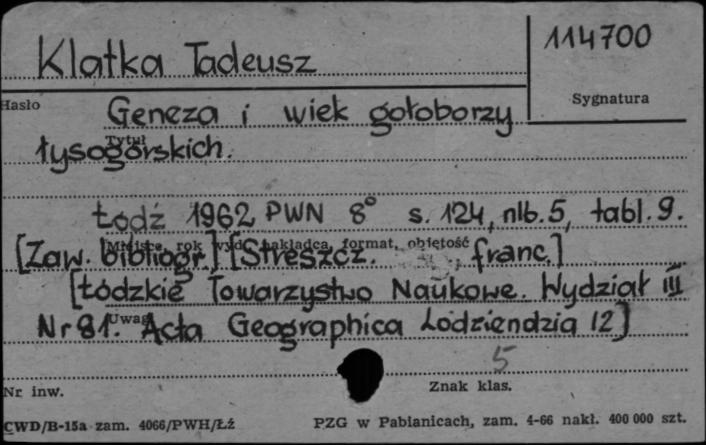 Klatka Tadeusz
114700
Hasło
Sygnatura
Geneza i wiek gołoborzy
Tytuł
łysogórskich.
Łódź 1962 PWN 8° s. 124, nlb. 5, tabl. 9.
Miejsce, rok wyd., nakładca, format, objętość
[Zaw. bibliogr.] [Streszcz. franc.]
[Łódzkie Towarzystwo Naukowe. Wydział III
Uwagi
Nr 81. Acta Geographica Lodziendzia 12]
5
Nr inw.
Znak klas.
CWD/B-15a zam. 4066/PWH/Łź
PZG w Pabianicach, zam. 4-66 nakł. 400 000 szt.